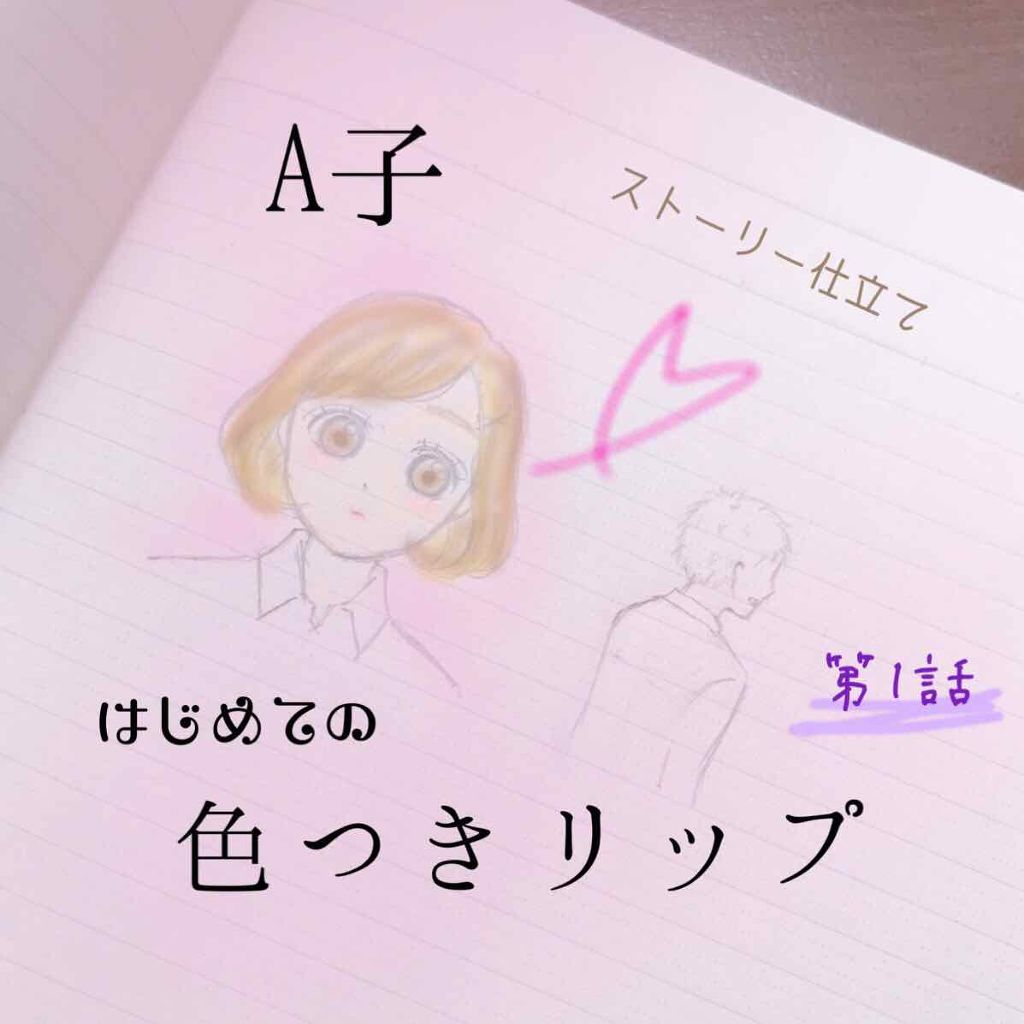 A子
ストーリー仕立て
第1話
はじめての
色つきリップ